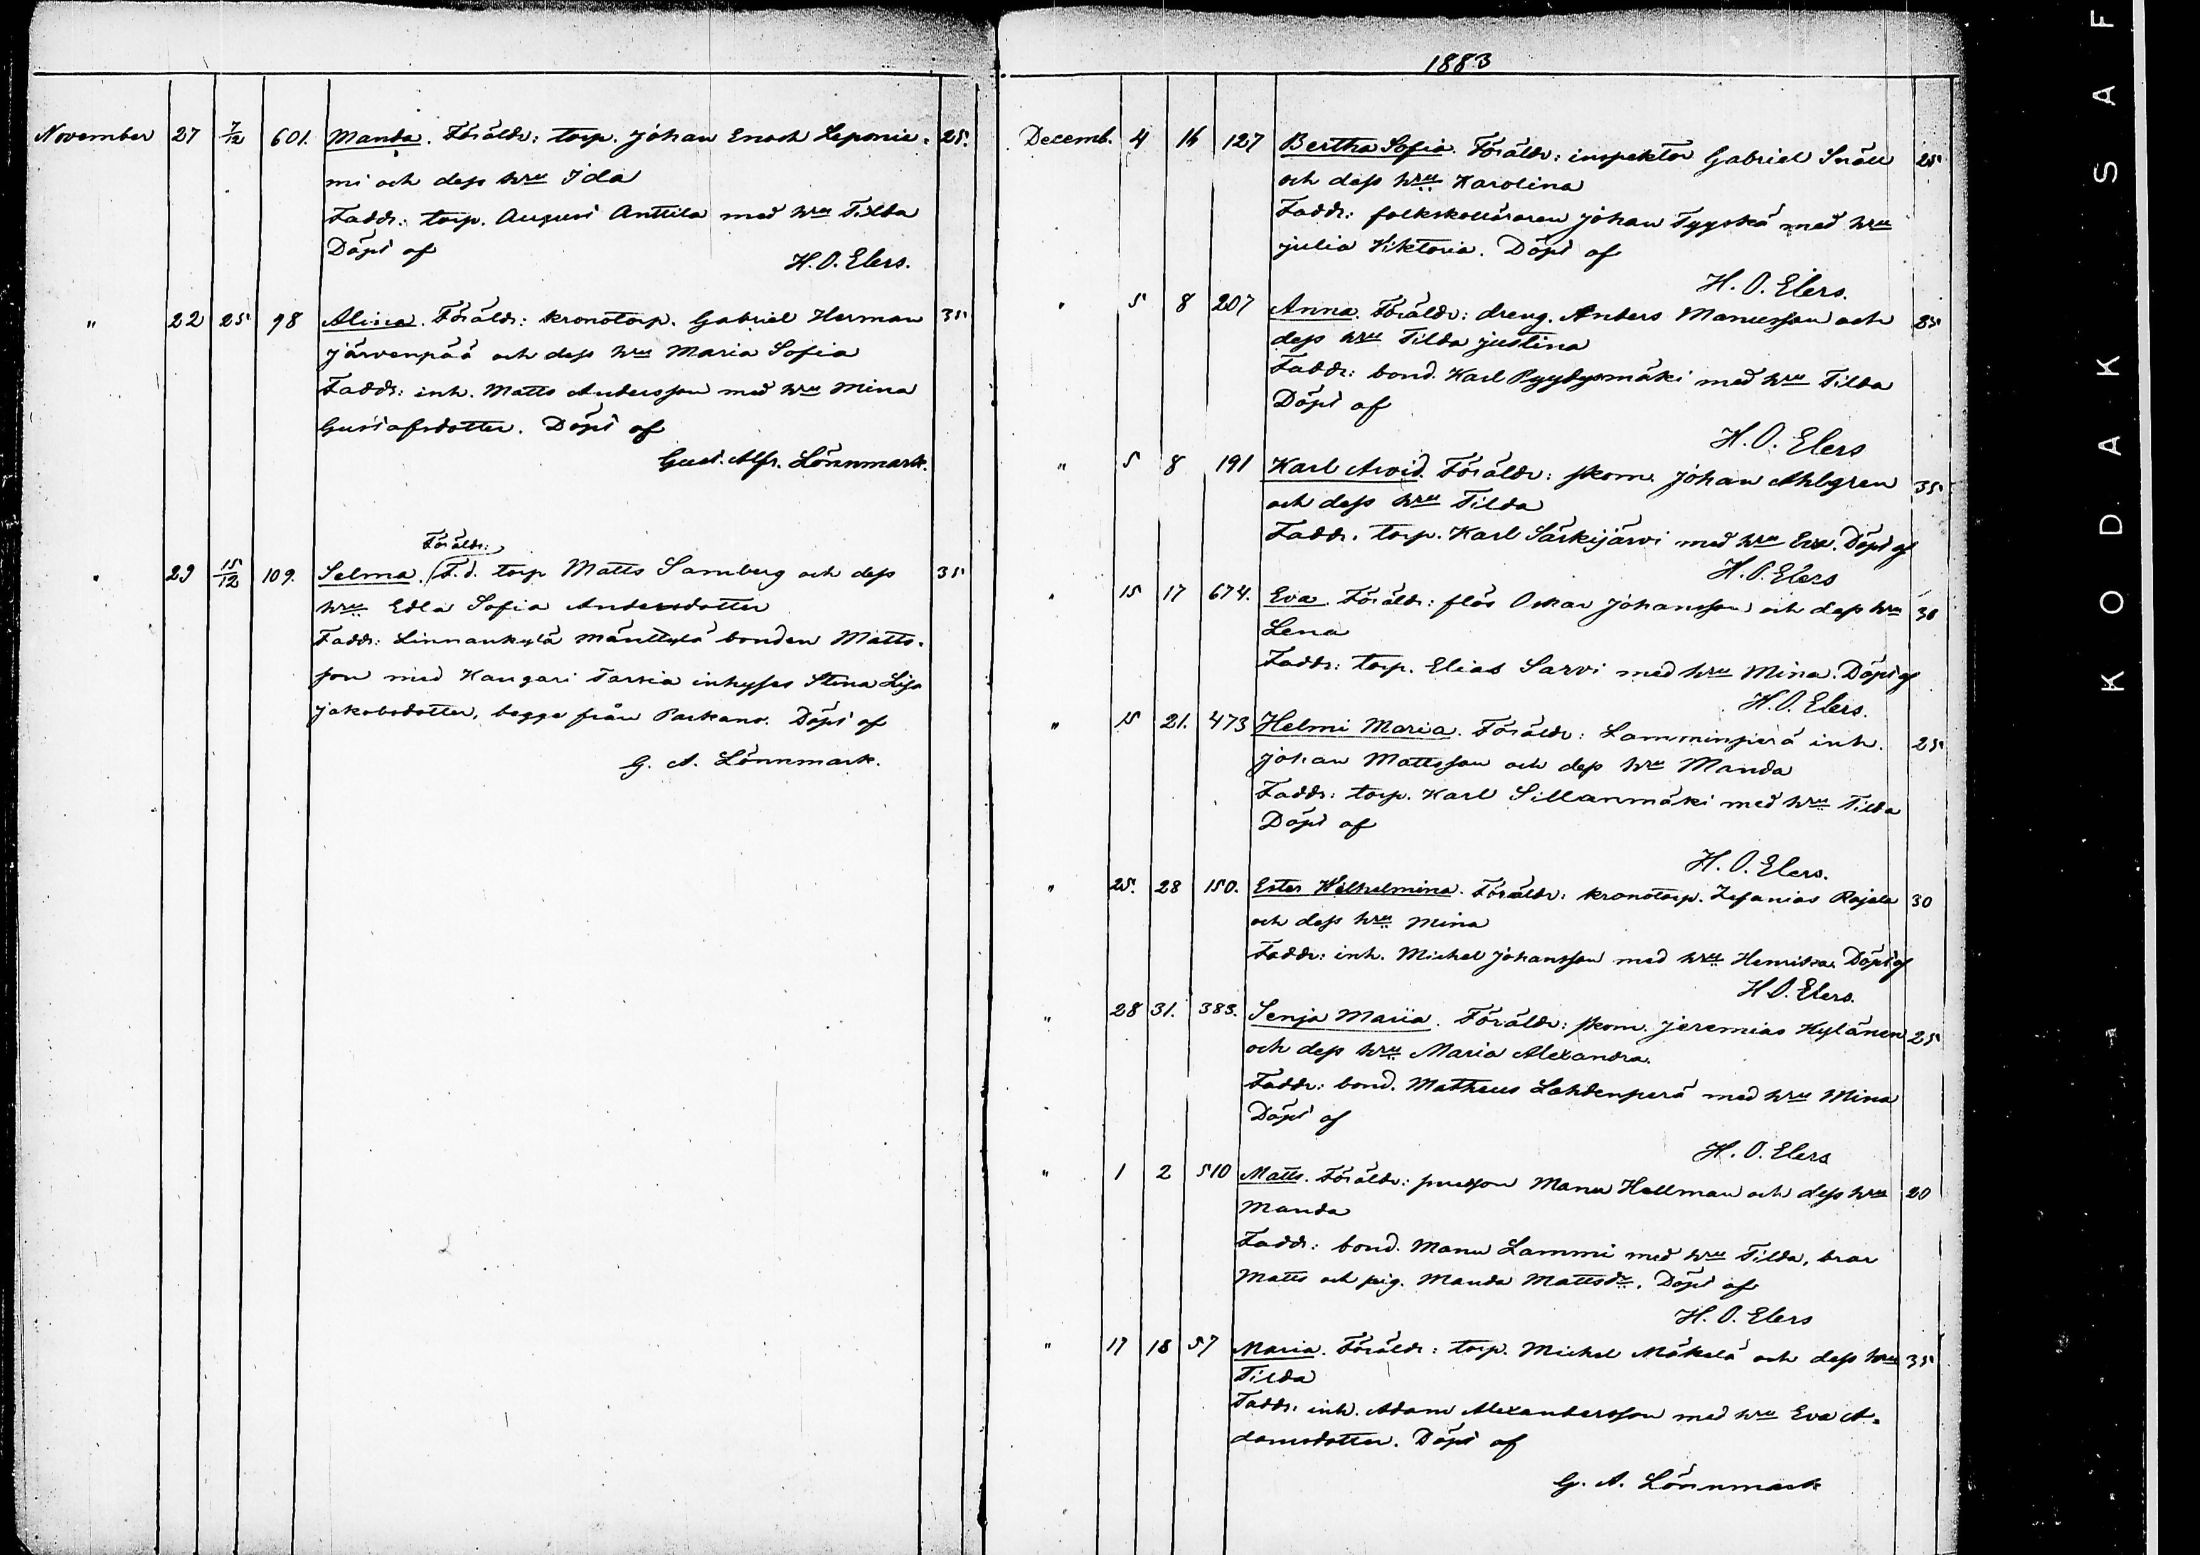 November 27 7/12 601. Manda. Föräldr: torp. Johan Enoch Leponie- 25.
mi och dess hru Ida
Faddr: torp. August Anttila med hru Tilda
Döpt af
H. O. Elers.
" 22 25 98 Alina. Föräldr: kronotorp. Gabriel Herman 35
Järvenpää och dess hru Maria Sofia
Faddr: inh. Matts Andersson med hru Mina
Gustafsdotter. Döpt af
Gust. Alfr. Lönnmark.
Föräldr:
" 29 15/12 109. Selma. (F.d. torp Matts Samberg och dess 35
hru Edla Sofia Andersdotter
Faddr: Linnankylä Mänttylä bonden Matts-
son med Kangari Tarvia inhyses Stina Lisa
Jakobsdotter, begge från Parkano. Döpt af
G. A. Lönnmark.
1883
Decemb. 4 16 127 Bertha Sofia. Föräldr: inspektor Gabriel Snäll 25
och dess hru Karolina
Faddr: folkskolläraren Johan Tyyskä med hru
Julia Viktoria. Döpt af
H. O. Elers.
" 5 8 207 Anna. Föräldr: dreng. Anders Manusson och 25
dess hru Tilda Justina
Faddr: bond. Karl Pyydysmäki med hru Tilda
Döpt af
H. O. Elers
" 5 8 191 Karl Arvid. Föräldr: skom. Johan Ahlgren 35
och dess hru Tilda
Faddr. torp. Karl Särkijärvi med hru Eva. Döpt af
H. O. Elers
" 15 17 674. Eva. Föräldr: Oskar Johansson och dess hru 30
Lena
Faddr: torp. Elias Sarvi med hru Mina. Döpt af
H. O. Elers.
" 15 21. 473 Helmi Maria. Föräldr: Lamminperä inh. 25
Johan Mattsson och dess hru Manda
Faddr: torp. Karl Sillanmäki med hru Tilda
Döpt af
H. O. Elers.
" 25. 28 150. Ester Wilhelmina. Föräldr: kronotorp. Zefanias Rajala 30
och dess hru Mina
Faddr: inh. Michel Johansson med hru Henrika. Döpt af
H. O. Elers.
" 28 31. 383. Senja Maria. Föräldr: skom. Jeremias Kylänen 25
och dess hru Maria Alexandra.
Faddr: bond. Matheus Lahdenperä med hru Mina
Döpt af
H. O. Elers
" 1 2 510 Matts. Föräldr: Manu Hellman och dess hru 20
Manda
Faddr: bond. Manu Lammi med hru Tilda, bror
Matts och pig. Manda Mattsdr. Döpt af
H. O. Elers
" 17 18 57 Maria. Föräldr: torp. Michel Mäkelä och dess hru 35
Tilda
Faddr. inh. Adam Alexandersson med hru Eva A-
damsdotter. Döpt af
G. A. Lönnmark
KODAK SAF